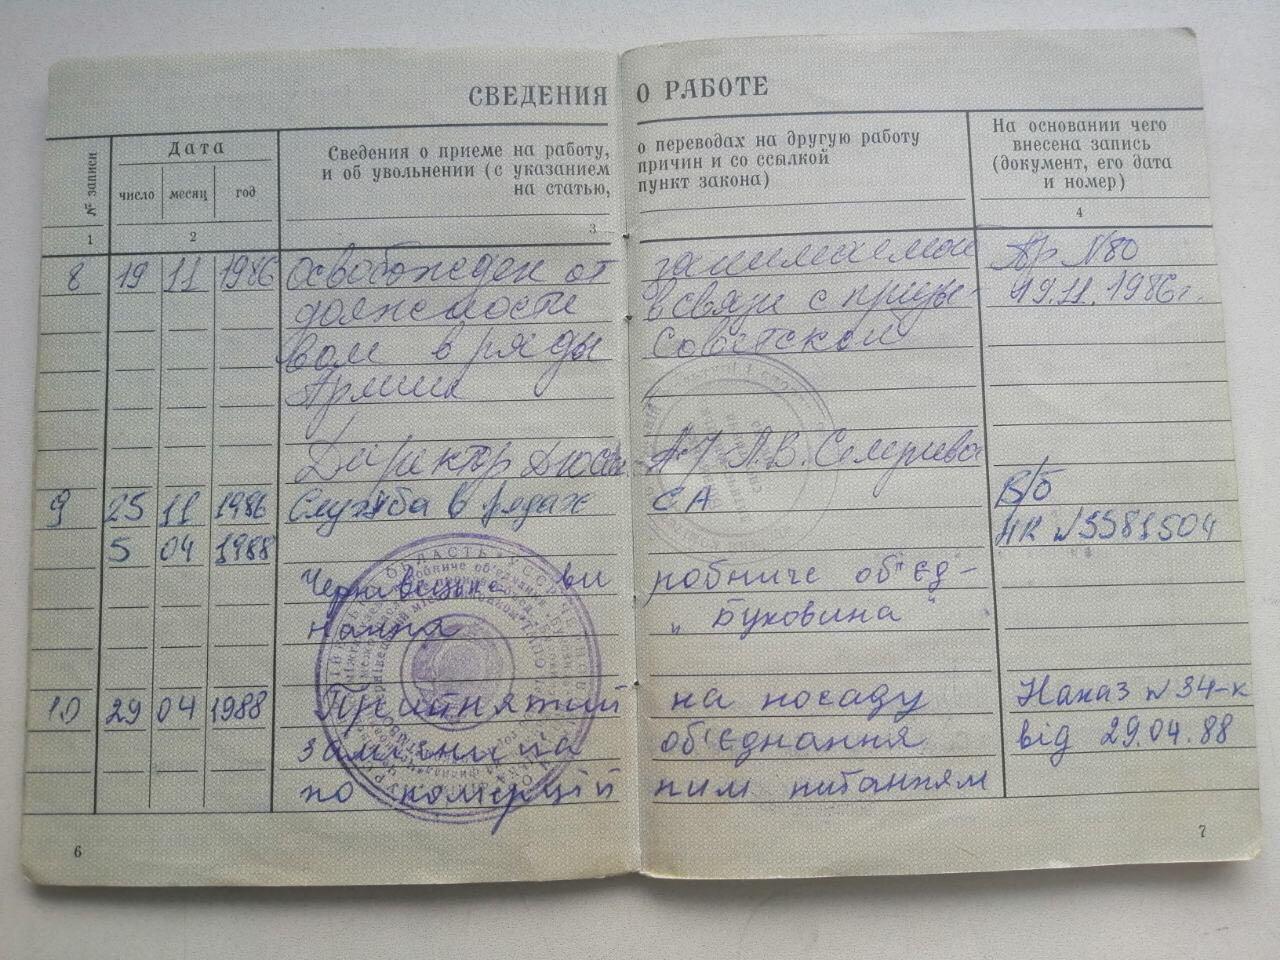 СВЕДЕНИЯ О РАБОТЕ
№ записи
Дата
число месяц год
Сведения о приеме на работу, о переводах на другую работу
и об увольнении (с указанием причин и со ссылкой
на статью, пункт закона)
На основании чего
внесена запись
(документ, его дата
и номер)
1 2 3 4
8 19 11 1986 Освобожден от занимаемой Пр №80
должности в связи с призы- 19.11.1986г.
вом в ряды Советской
Армии
Директор Л.В.
9 25 11 1986 Служба в рядах СА В/б
5 04 1988 НК №5581504
Чернівецьке ви робниче об'єд-
нання "Буковина"
10 29 04 1988 Прийнятий на посаду Наказ №34-к
замісника об'єднання від 29.04.88
по комерцій ним питанням
6 7